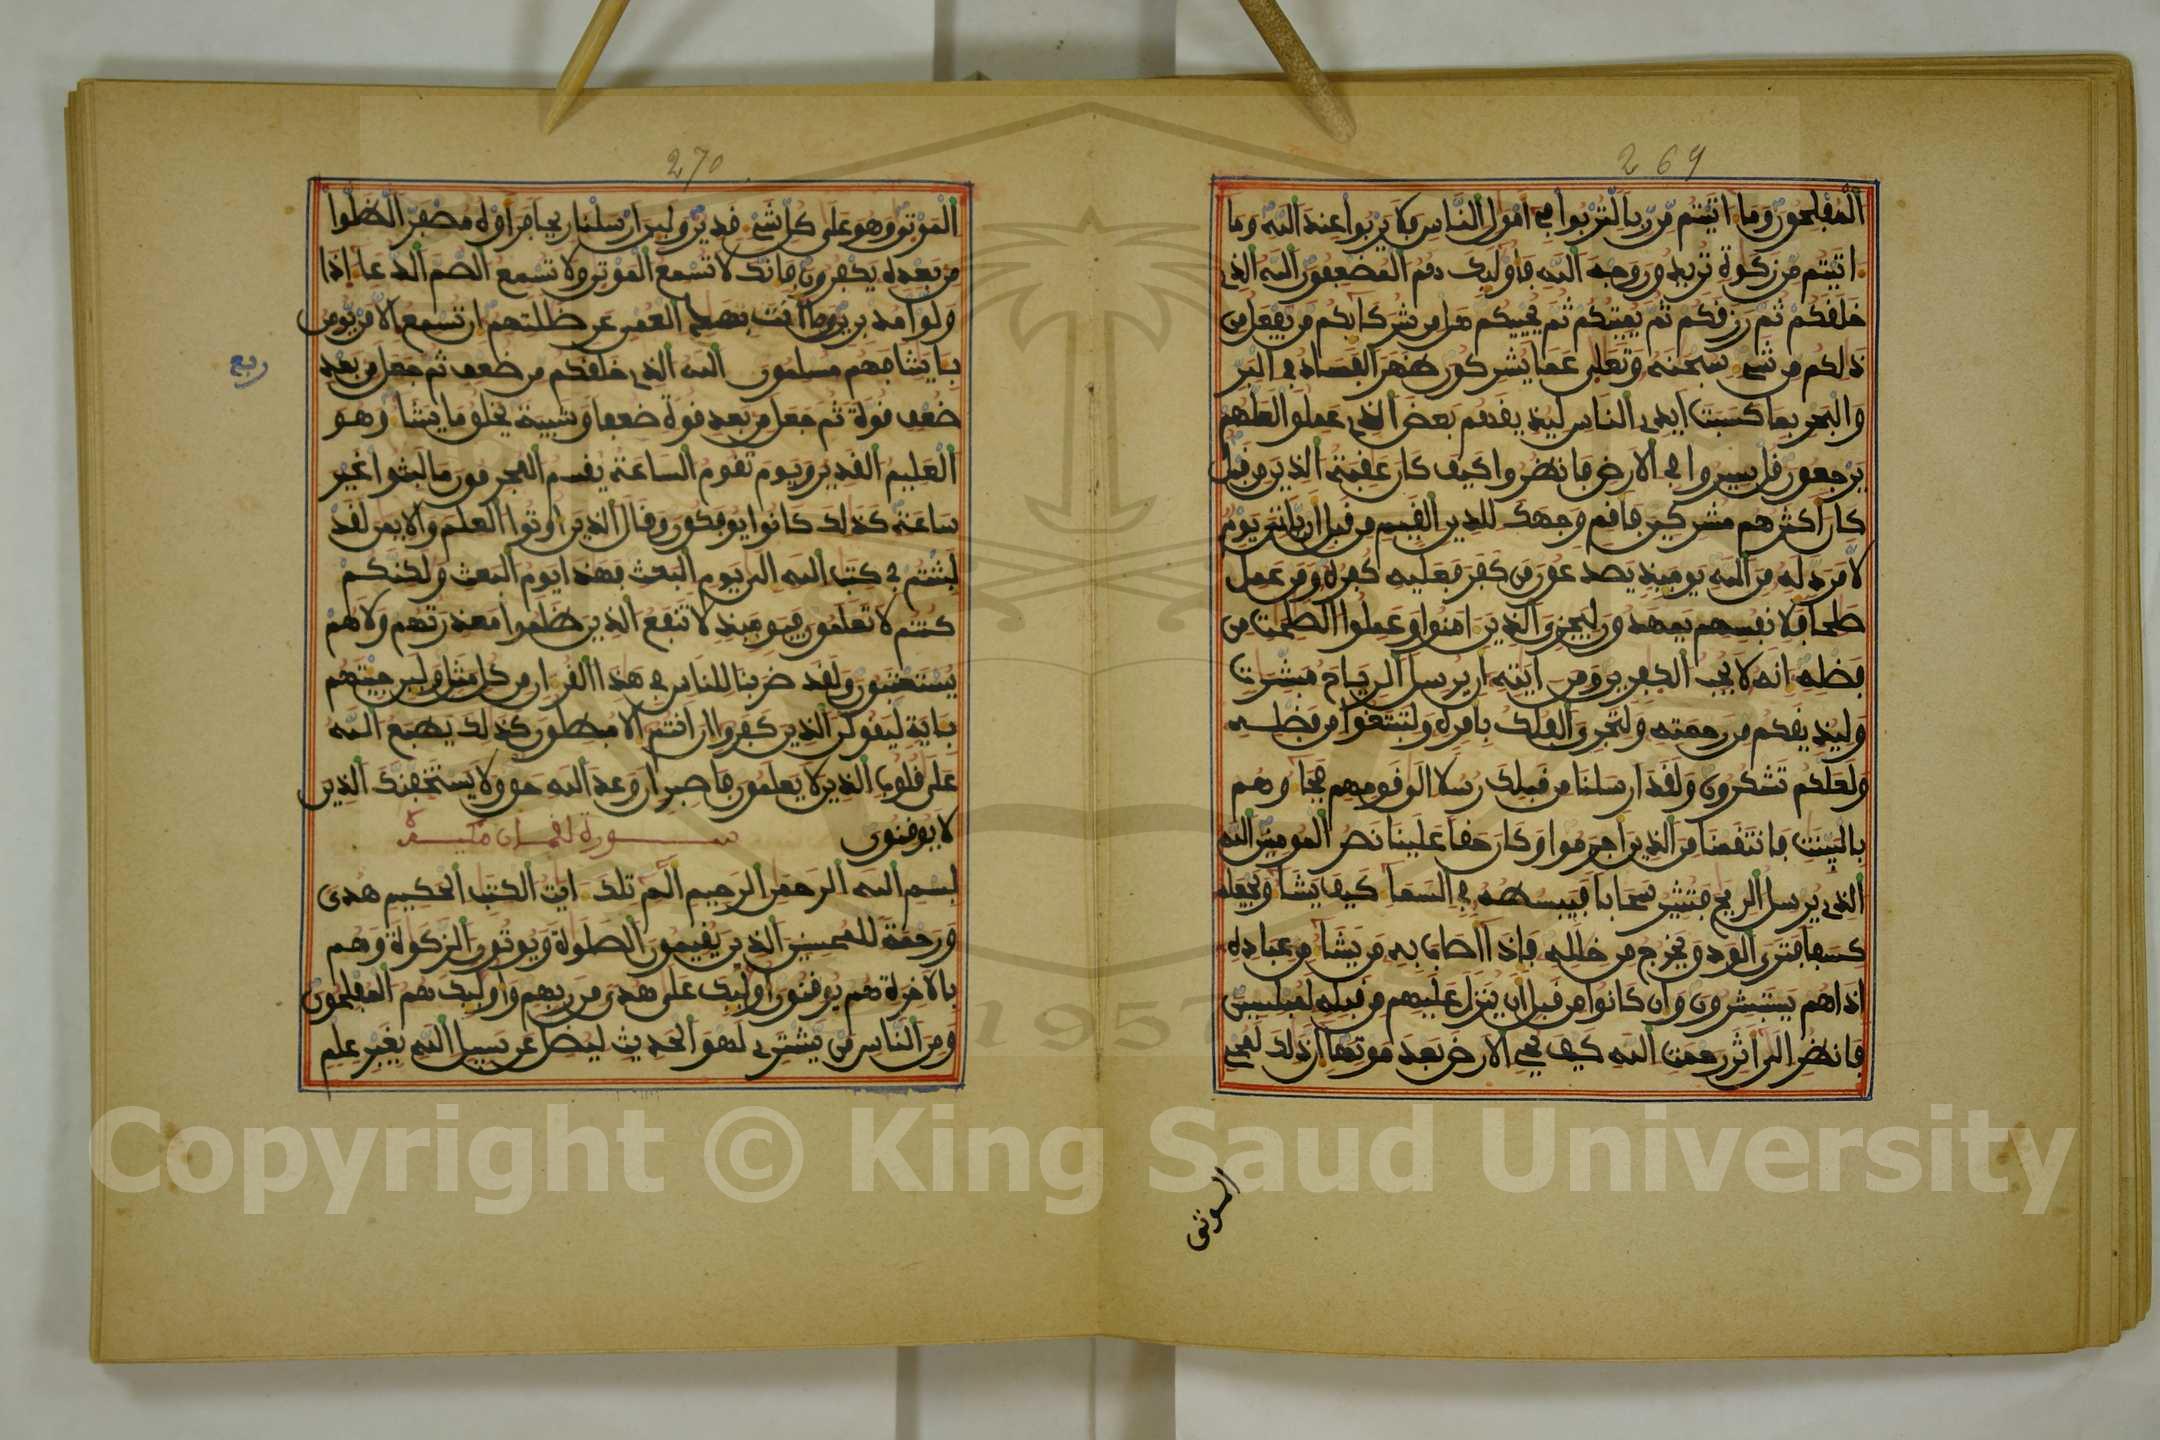 269
المفلحون وما اتيتم من ربا لتربوا في امول الناس فلا يربوا عند الله وما
اتيتم من زكوة تريدون وجه الله فأوليك هم المضعفون الله الذي
خلقكم ثم رزقكم ثم يميتكم ثم يحييكم هل من شركايكم من يفعل من
ذلكم من شيء سبحنه وتعلى عما يشركون ظهر الفساد في البر
والبحر بما كسبت ايدي الناس ليذيقهم بعض الذي عملوا لعلهم
يرجعون قل سيروا في الارض فانظروا كيف كان عقبة الذين من قبل
كان اكثرهم مشركين فاقم وجهك للدين القيم من قبل ان ياتي يوم
لا مرد له من الله يوميذ يصدعون من كفر فعليه كفره ومن عمل
صلحا فلانفسهم يمهدون ليجزي الذين امنوا وعملوا الصلحت من
فضله انه لا يحب الكفرين ومن ايته ان يرسل الرياح مبشرت
وليذيقكم من رحمته ولتجري الفلك بامره ولتبتغوا من فضله
ولعلكم تشكرون ولقد ارسلنا من قبلك رسلا الى قومهم فجاوهم
بالبينت فانتقمنا من الذين اجرموا وكان حقا علينا نصر المومنين الله
الذي يرسل الريح فتثير سحابا فيبسطه في السما كيف يشا ويجعله
كسفا فترى الودق يخرج من خلله فإذا اصاب به من يشا من عباده
اذا هم يستبشرون وان كانوا من قبل ان ينزل عليهم من قبله لمبلسين
فانظر الى اثر رحمت الله كيف يحي الارض بعد موتها ان ذلك لمحي
الموتى
270
الموتى وهو على كل شيء قدير ولين ارسلنا ريحا فراوه مصفرا لظلوا
من بعده يكفرون فانك لا تسمع الموتى ولا تسمع الصم الدعا اذا
ولوا مدبرين وما انت بهد العمي عن ضللتهم ان تسمع الا من يومن
بايتنا فهم مسلمون الله الذي خلقكم من ضعف ثم جعل من بعد
ربع
ضعف قوة ثم جعل من بعد قوة ضعفا وشيبة يخلق ما يشا وهو
العليم القدير ويوم تقوم الساعة يقسم المجرمون ما لبثوا غير
ساعة كذلك كانوا يوفكون وقال الذين اوتوا العلم والايمن لقد
لبثتم في كتب الله الى يوم البعث فهذا يوم البعث ولكنكم
كنتم لا تعلمون فيوميذ لا تنفع الذين ظلموا معذرتهم ولا هم
يستعتبون ولقد ضربنا للناس في هذا القران من كل مثل ولين جيتهم
باية ليقولن الذين كفروا ان انتم الا مبطلون كذلك يطبع الله
على قلوب الذين لا يعلمون فاصبر ان وعد الله حق ولا يستخفنك الذين
لا يوقنون سورة لقمان مكية
بسم الله الرحمن الرحيم الم تلك ايت الكتب الحكيم هدى
ورحمة للمحسنين الذين يقيمون الصلوة ويوتون الزكوة وهم
بالاخرة هم يوقنون اوليك على هدى من ربهم واوليك هم المفلحون
ومن الناس من يشتري لهو الحديث ليضل عن سبيل الله بغير علم
1957
Copyright © King Saud University